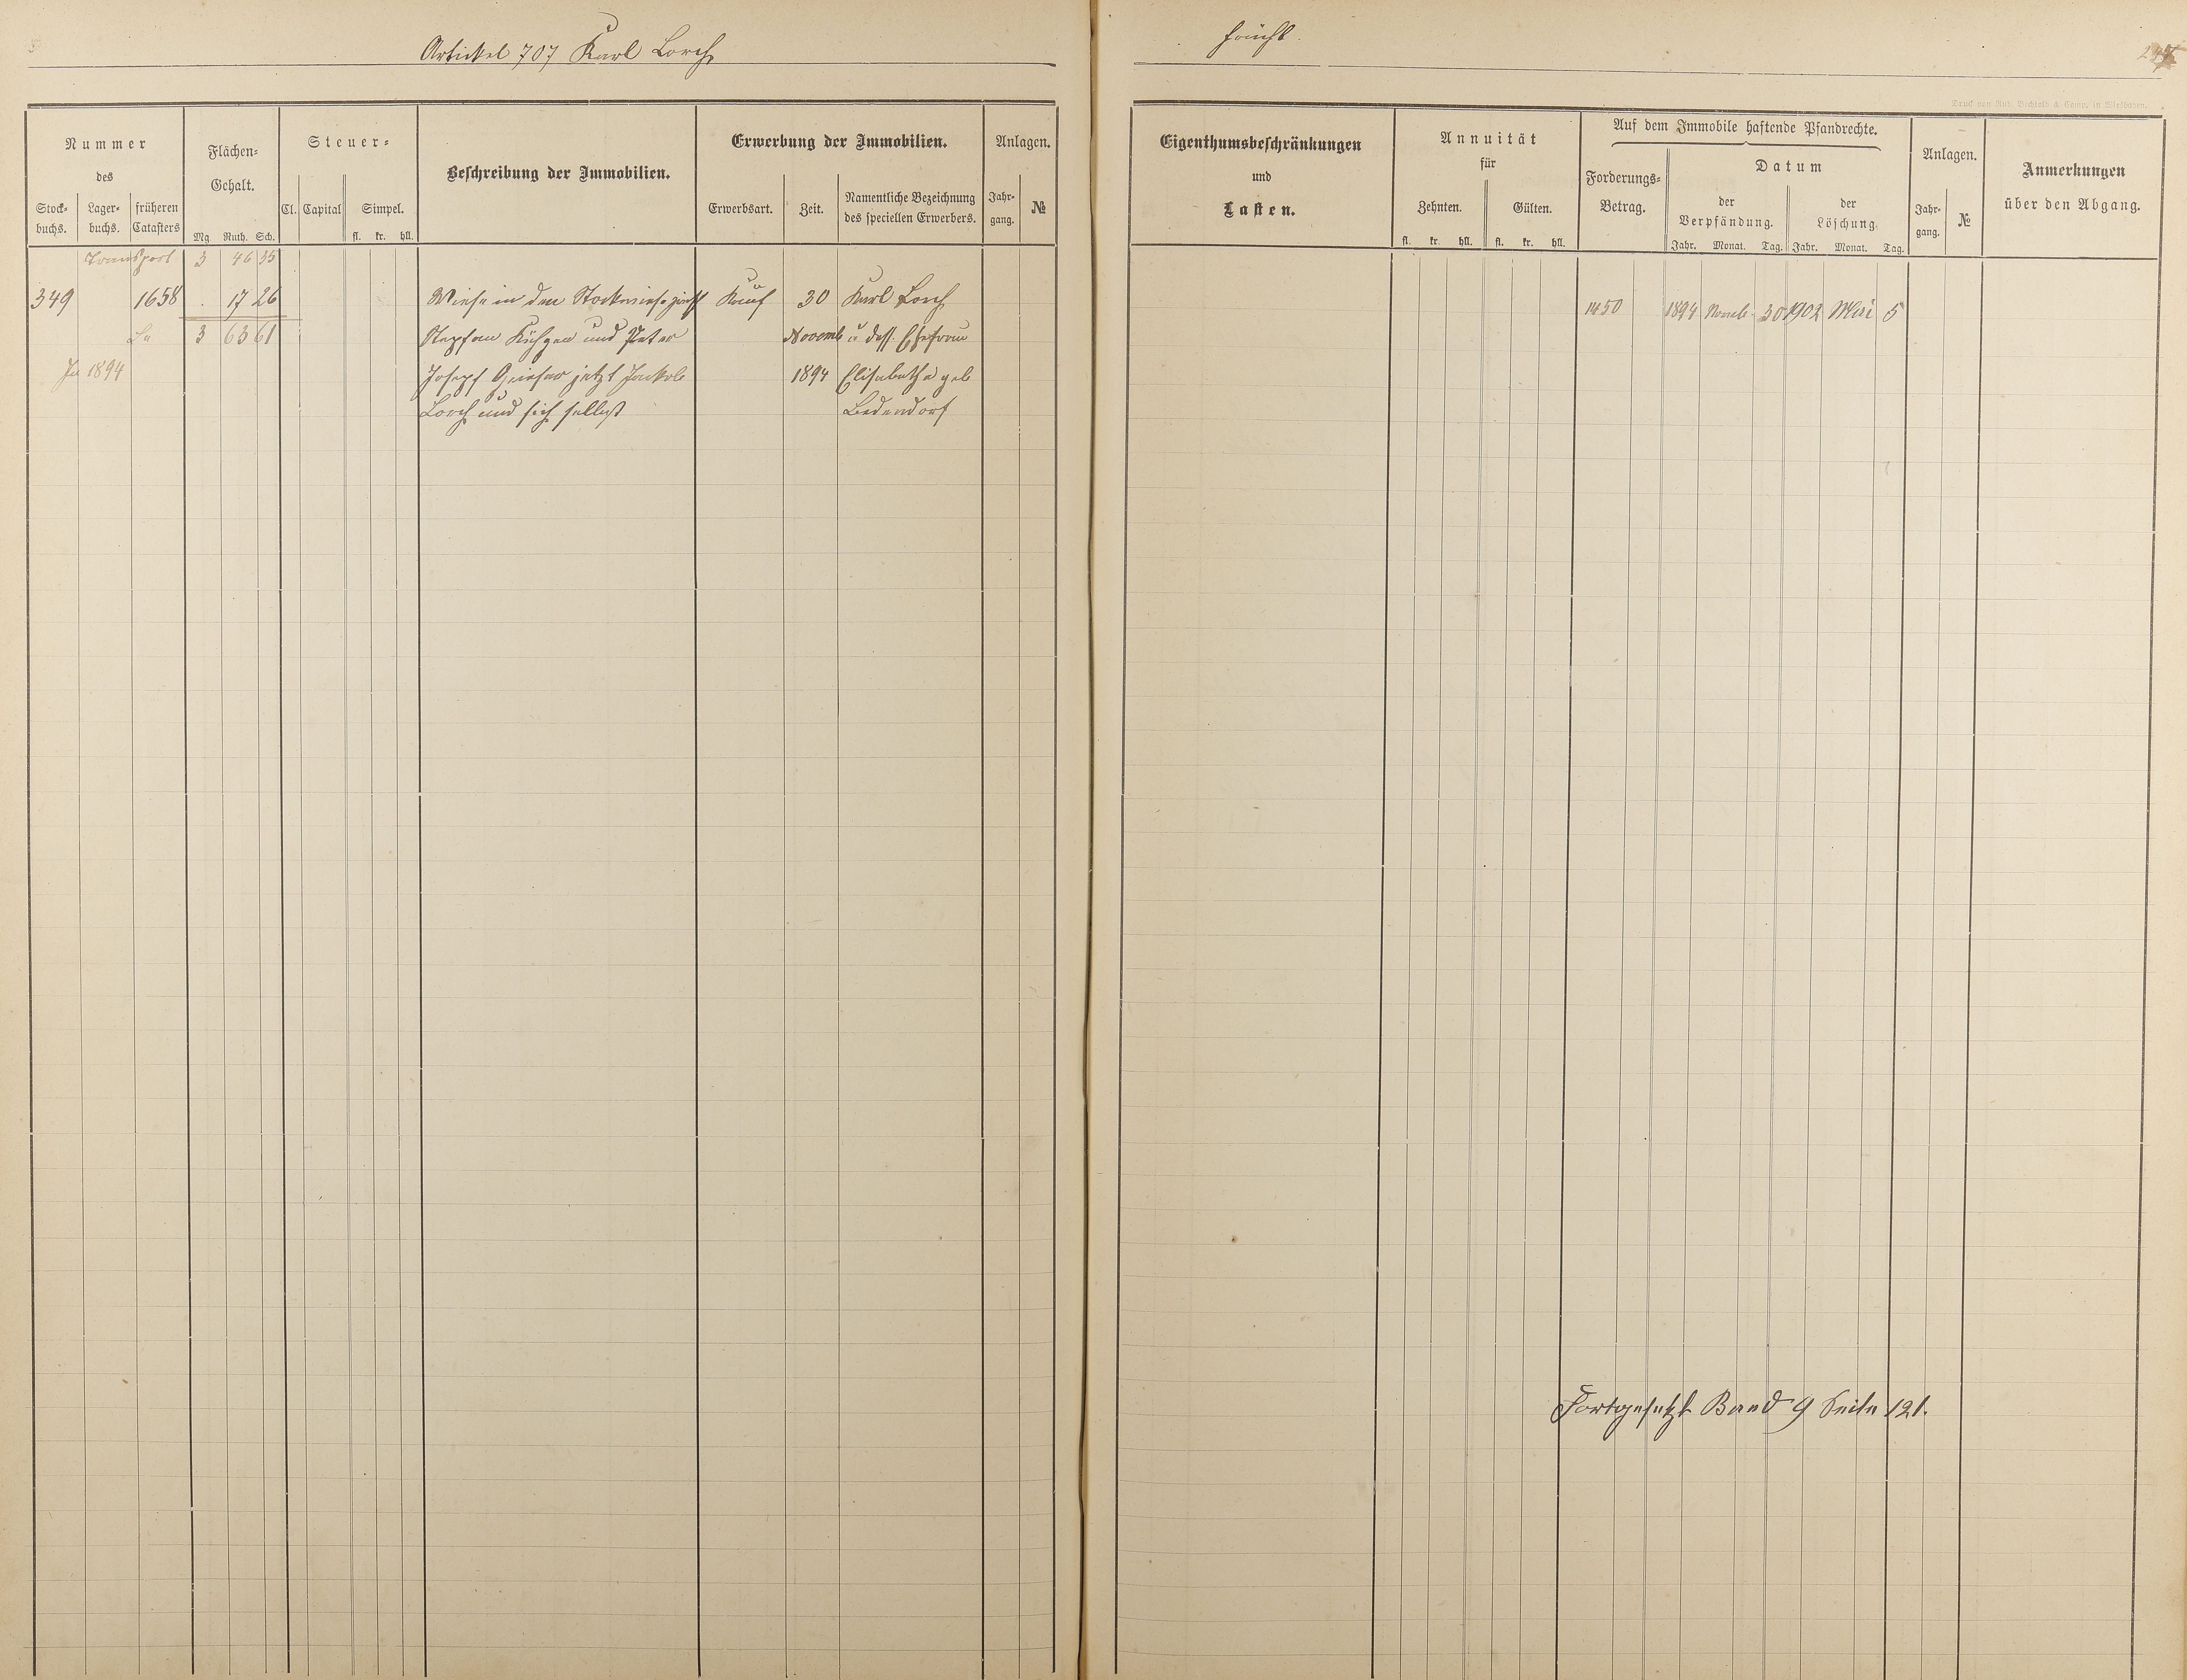 Artickel 707 Karl Lorch
Nummer
des
Stock-
buchs.
Lager-
buchs.
früheren
Catasters
Flächen-
Gehalt.
Mg. Ruth. Sch.
Steuer-
Cl. Capital Simpel.
fl. kr. hll.
Beschreibung der Immobilien.
Erwerbung der Immobilien.
Erwerbsart. Zeit.
Namentliche Bezeichnung
des speciellen Erwerbers.
Anlagen.
Jahr-
gang.
№
Transport 3 46 35
349 1658 . 17 26 Wiese in der Stockwiese zwischen Kauf 30 Karl Lorch
3 63 61 Stephan und Peter Novemb u dess. Ehefrau
1894 Joseph jetzt Jackob 1894 Elisabetha geb
Lorch und sich selbst Bedendorf
Frücht.
Druck von Rud. Bechtold & Comp. in Wiesbaden.
Eigenthumsbeschränkungen
und
Lasten.
Annuität
für
Zehnten. Gülten.
fl. kr. hll. fl. kr. hll.
Auf dem Immobile haftende Pfandrechte.
Forderungs-
Betrag.
Datum
der
Verpfändung.
der
Löschung.
Jahr. Monat. Tag. Jahr. Monat. Tag.
Anlagen.
Jahr-
gang.
№
Anmerkungen
über den Abgang.
1450 1894 Novemb 30 1902 Mai 5
Fortgesetzt Band 9 Seite 121.